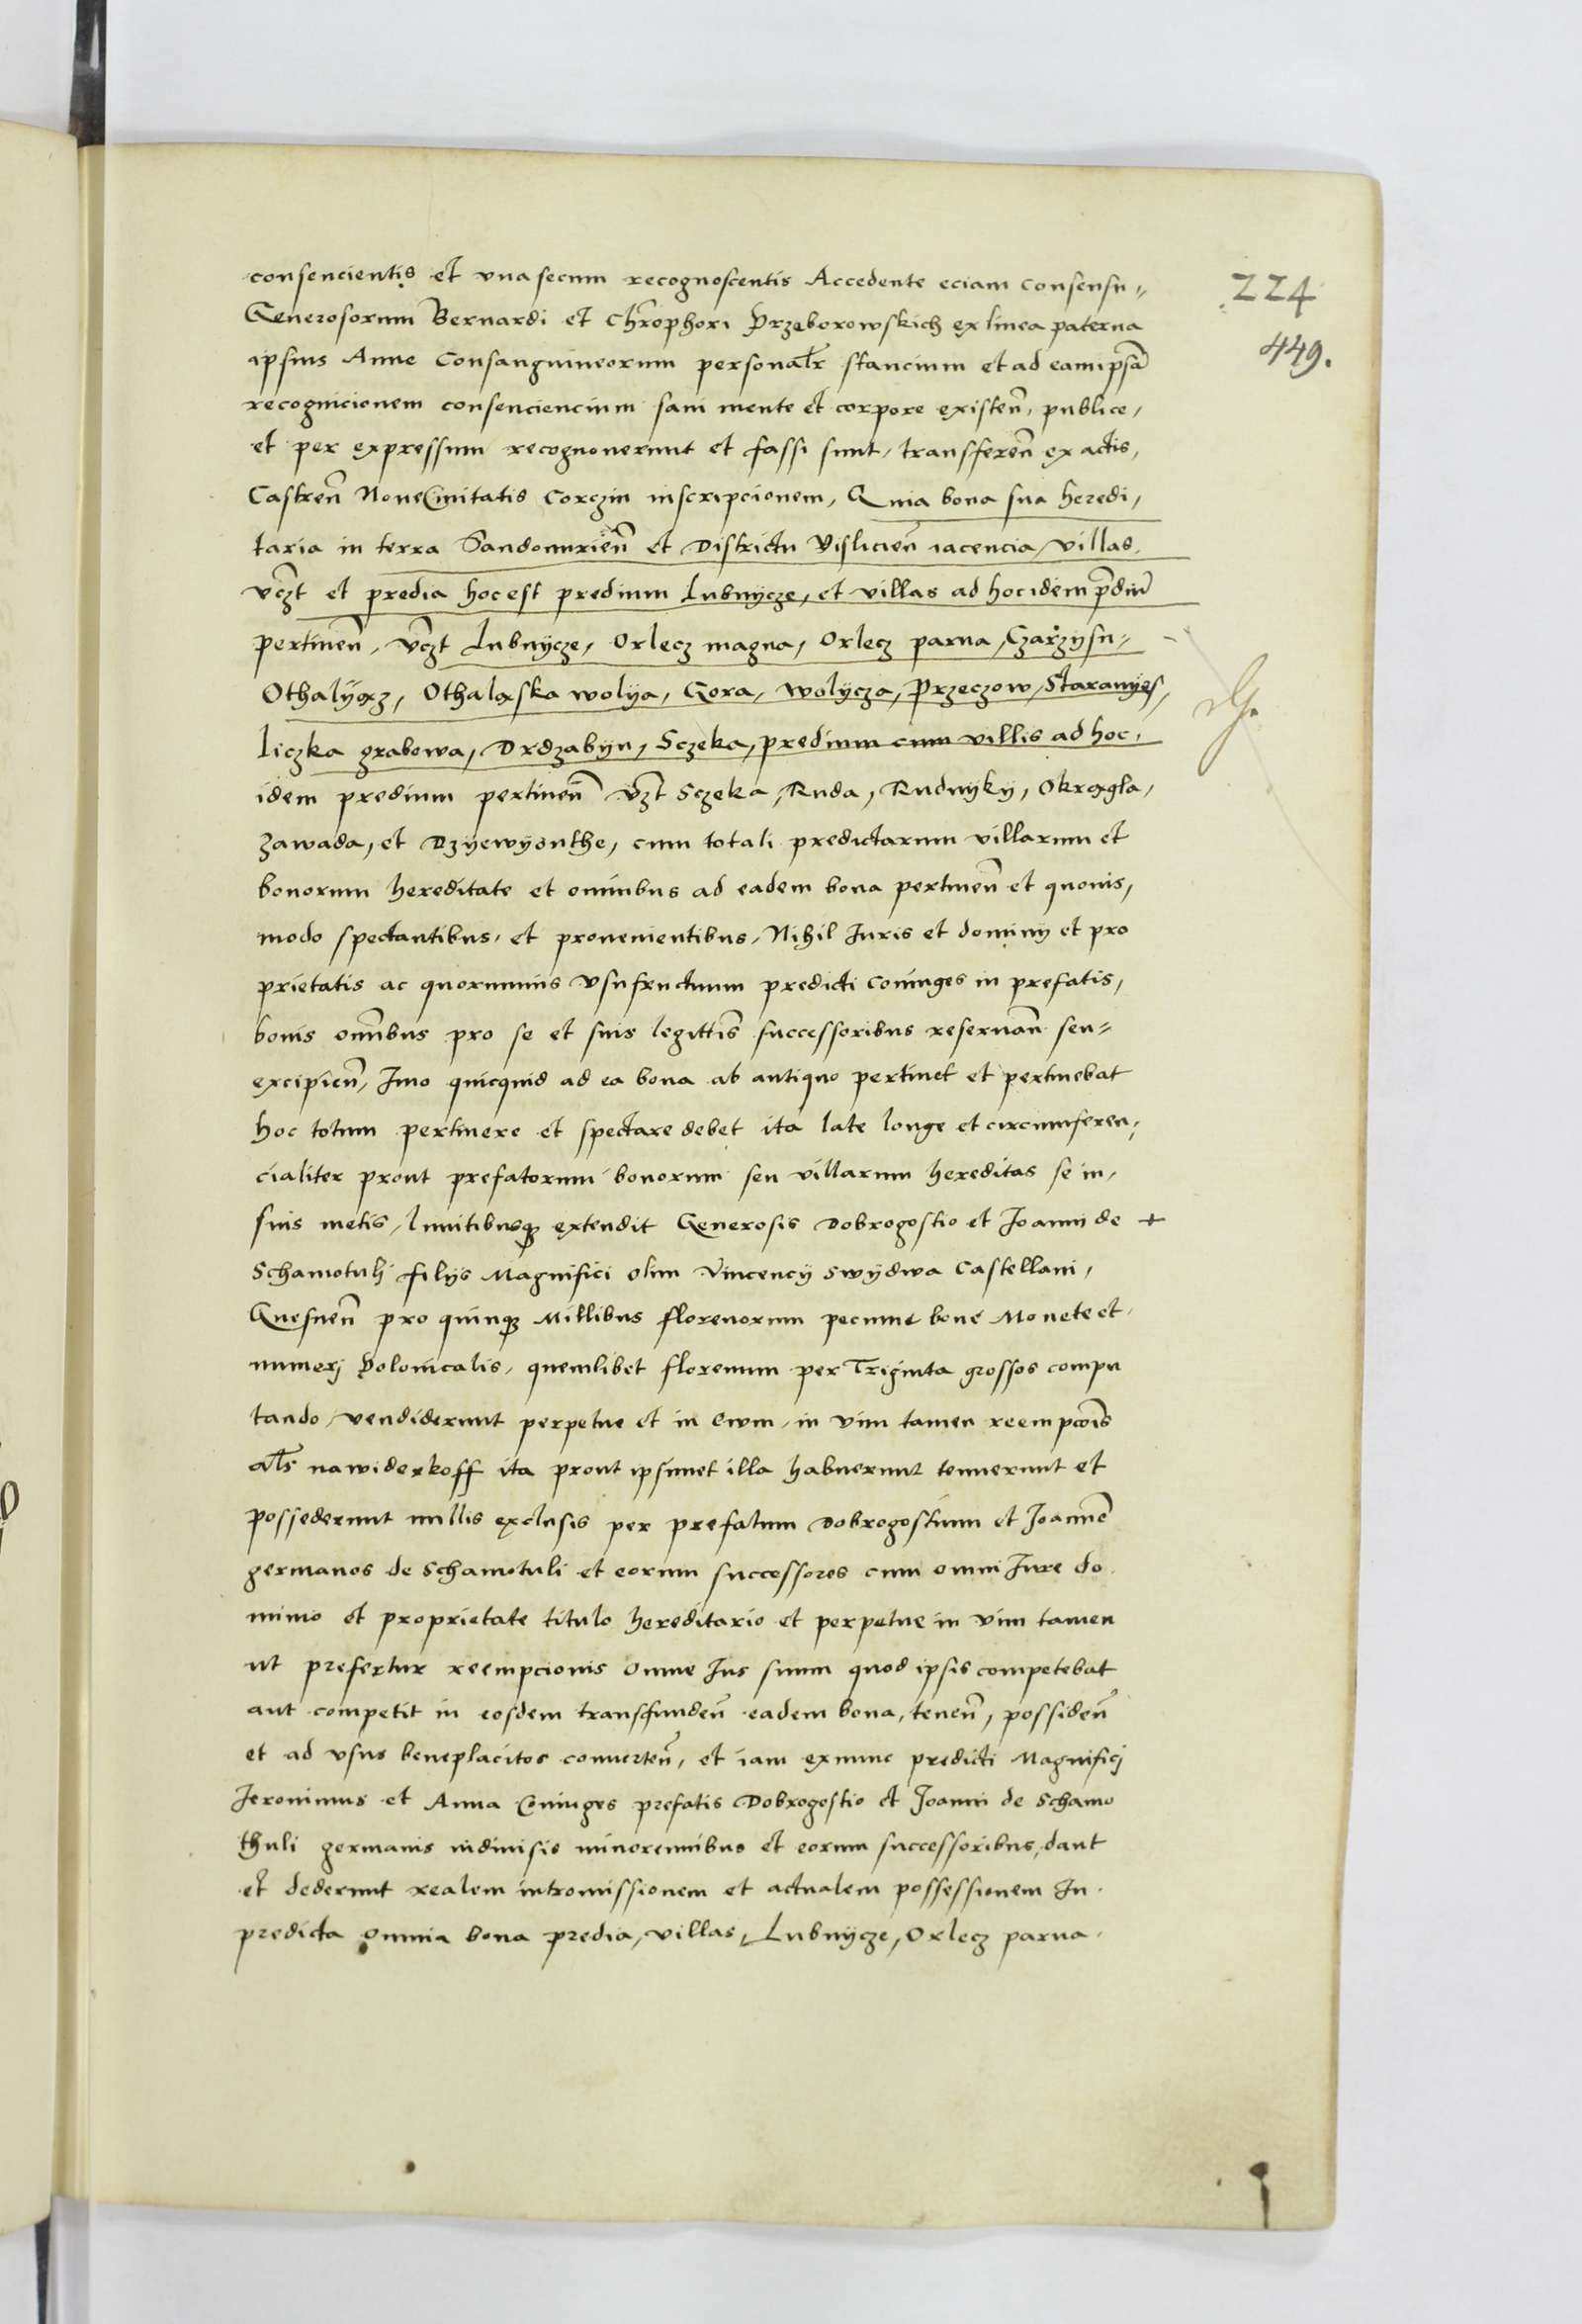 consencientis et vna secum recognoscentis Accedente eciam consensu
224
Generosorum Bernardi et Chrophori Przeborowskich ex linea paterna
449.
ipsius Anne Consanguineorum personalr stancium et ad eam ipsã
recognicionem consenciencium sani mente et corpore existeñ, publice,
et per expressum recognouerunt et fassi sunt, transfereñ ex actis,
Castreñ Noue Ciuitatis Corczin inscripcionem, Quia bona sua heredi,
taria in terra Sandomirieñ et Districtu Vislicieñ iacencia, villas,
vczt et predia hoc est predium Lubnycze, et villas ad hoc idem prdiũ
pertineñ, vczt Lubnycze, Orlecz magna, Orlecz parua, Czarzysu-
Othalyąz, Othaląska wolya, Gora, wolycza, Przeczow, Staramyes,
liczka grabowa, Drdzabyn, Sczeka, predium cum villis ad hoc,
idem predium pertineñ vzt Sczeka, Ruda, Rudnyky, Okrągla,
Zawada, et Dzyewyanthe, cum totali predictarum villarum et
bonorum hereditate et omnibus ad eadem bona pertineñ et quouis,
modo spectantibus, et prouenientibus, Nihil Iuris et dominij et pro
prietatis ac quorumuis vsufructuum predicti coniuges in prefatis,
bonis omnibus pro se et suis legittis successoribus reseruañ seu-
excipieñ, Imo quicquid ad ea bona ab antiquo pertinet et pertinebat
hoc totum pertinere et spectare debet ita late longe et circumferen,
cialiter prout prefatorum bonorum seu villarum hereditas se in,
suis metis, limitibusq; extendit Generosis Dobrogostio et Joanni de +
Schamotuli filijs Magnifici olim Vincencij Swydwa Castellani,
Gnesneñ pro quinq; Millibus florenorum pecunie bone Monete et
numeri Polonicalis, quemlibet florenum per Triginta grossos compu
tando, vendiderunt perpetue et in ewm, in vim tamen reempcõis
als nawiderkoff ita prout ipsimet illa habuerunt tenuerunt et
possederunt nullis exclusis per prefatum Dobrogostium et Joannẽ
germanos de Schamotuli et eorum successores cum omni Iure do
minio et proprietate titulo hereditario et perpetue in vim tamen
ut prefertur reempcionis omne Ius suum quod ipsis competebat
aut competit in eosdem transfundeñ eadem bona, teneñ, possideñ
et ad vsus beneplacitos conuerteñ, et iam exnunc predicti Magnifici
Jeronimus et Anna Coniuges prefatis Dobrogostio et Joanni de Schamo
thuli germanis indiuisis minorennibus et eorum successoribus, dant
et dederunt realem intromissionem et actualem possessionem In
predicta omnia bona predia, villas, Lubnycze, Orlecz parua